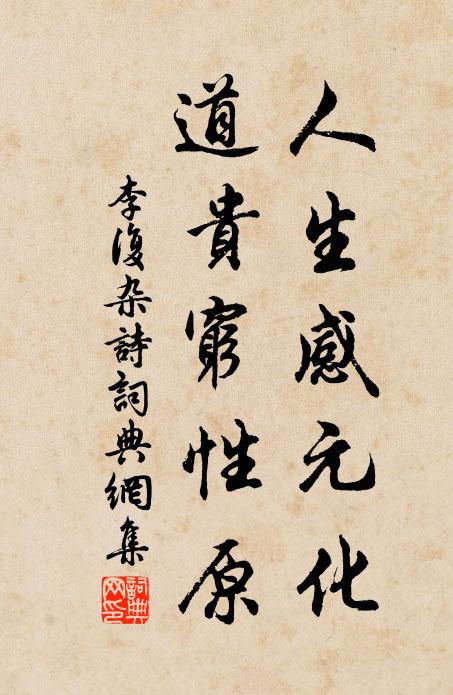 人生感元化
道貴窮性原
李復杂詩詞典網集
詞典網印